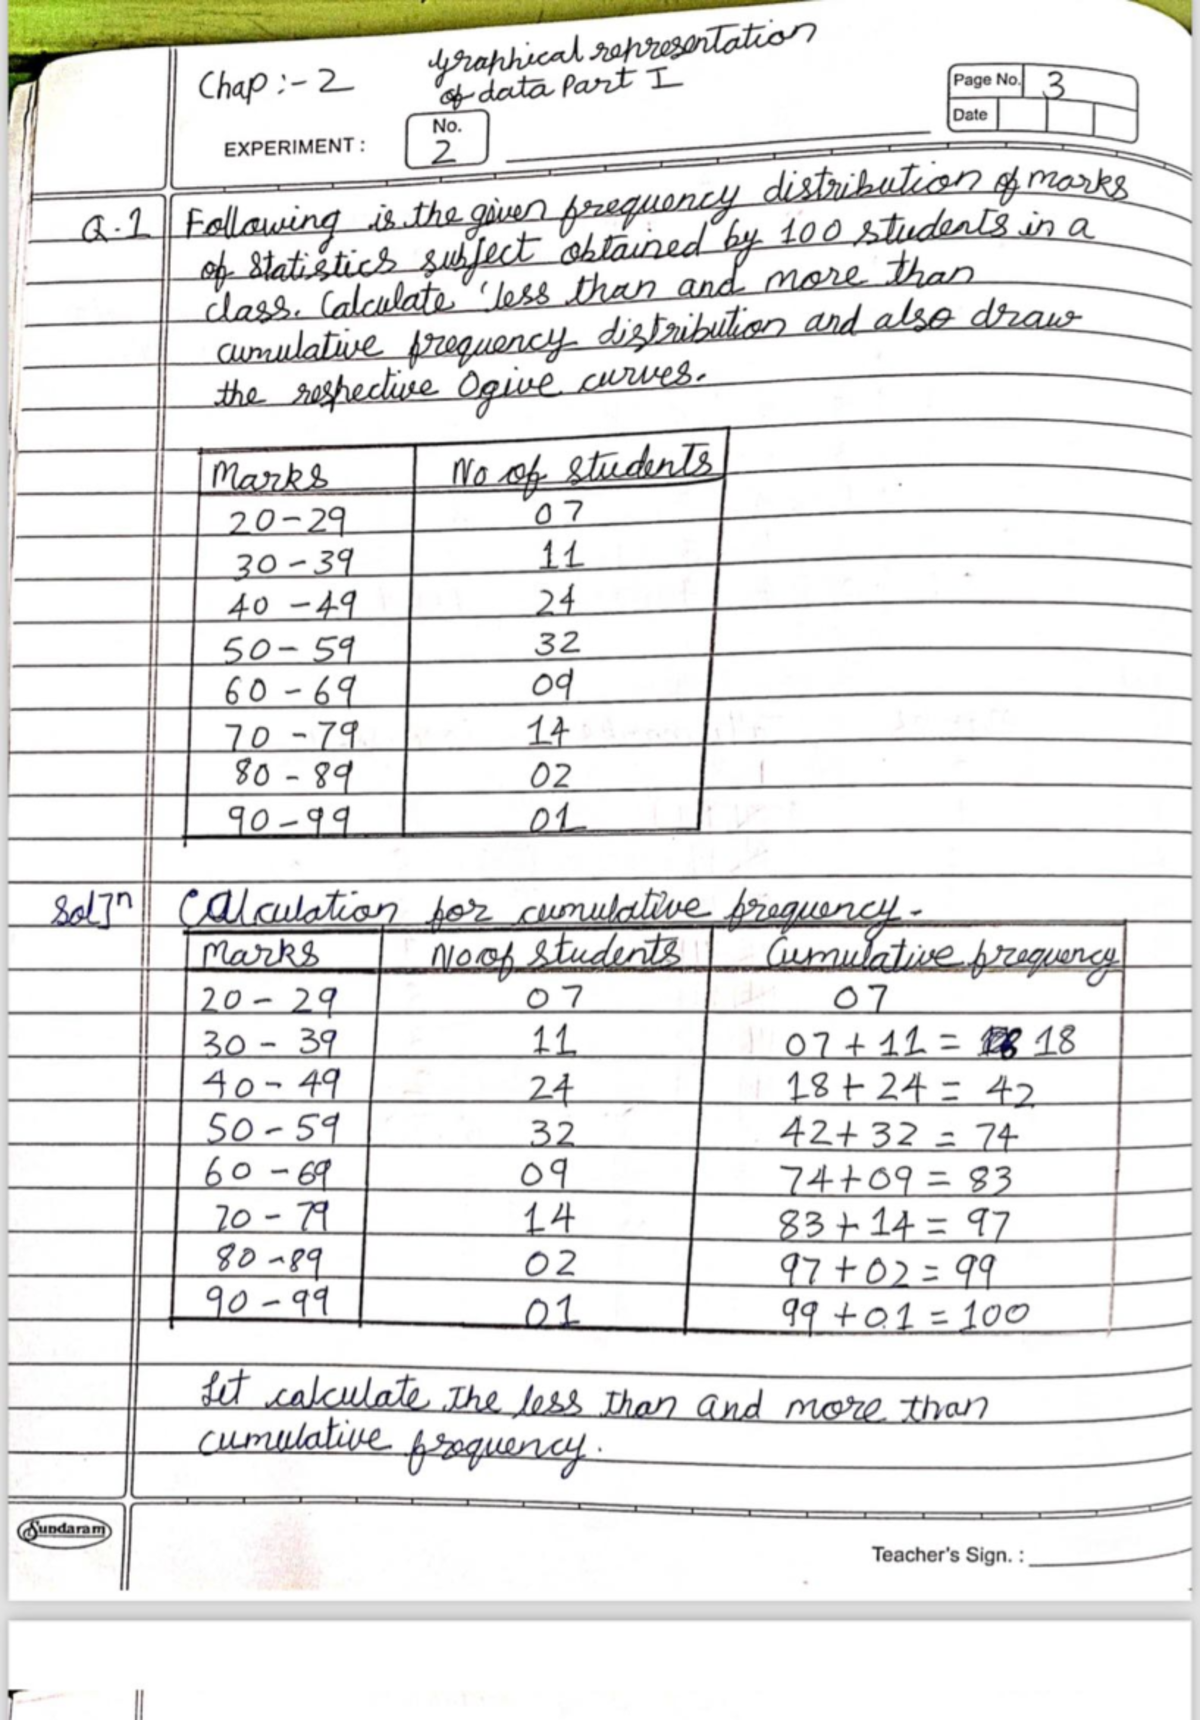 Chap :- 2
Graphical representation
of data Part I
Page No. 3
Date
EXPERIMENT :
No.
2
Q.1 Following is the given frequency distribution of marks
of Statistics subject obtained by 100 students in a
class. Calculate 'less than and more than
cumulative frequency distribution and also draw
the respective Ogive curves.
Marks No of students
20-29 07
30-39 11
40-49 24
50-59 32
60-69 09
70-79 14
80-89 02
90-99 01
Sol]n Calculation for cumulative frequency.
Marks No of Students Cumulative frequency
20-29 07 07
30-39 11 07+11= 18
40-49 24 18+24= 42
50-59 32 42+32=74
60-69 09 74+09=83
70-79 14 83+14=97
80-89 02 97+02=99
90-99 01 99+01=100
Let calculate The less than and more than
cumulative frequency.
Sundaram
Teacher's Sign. :